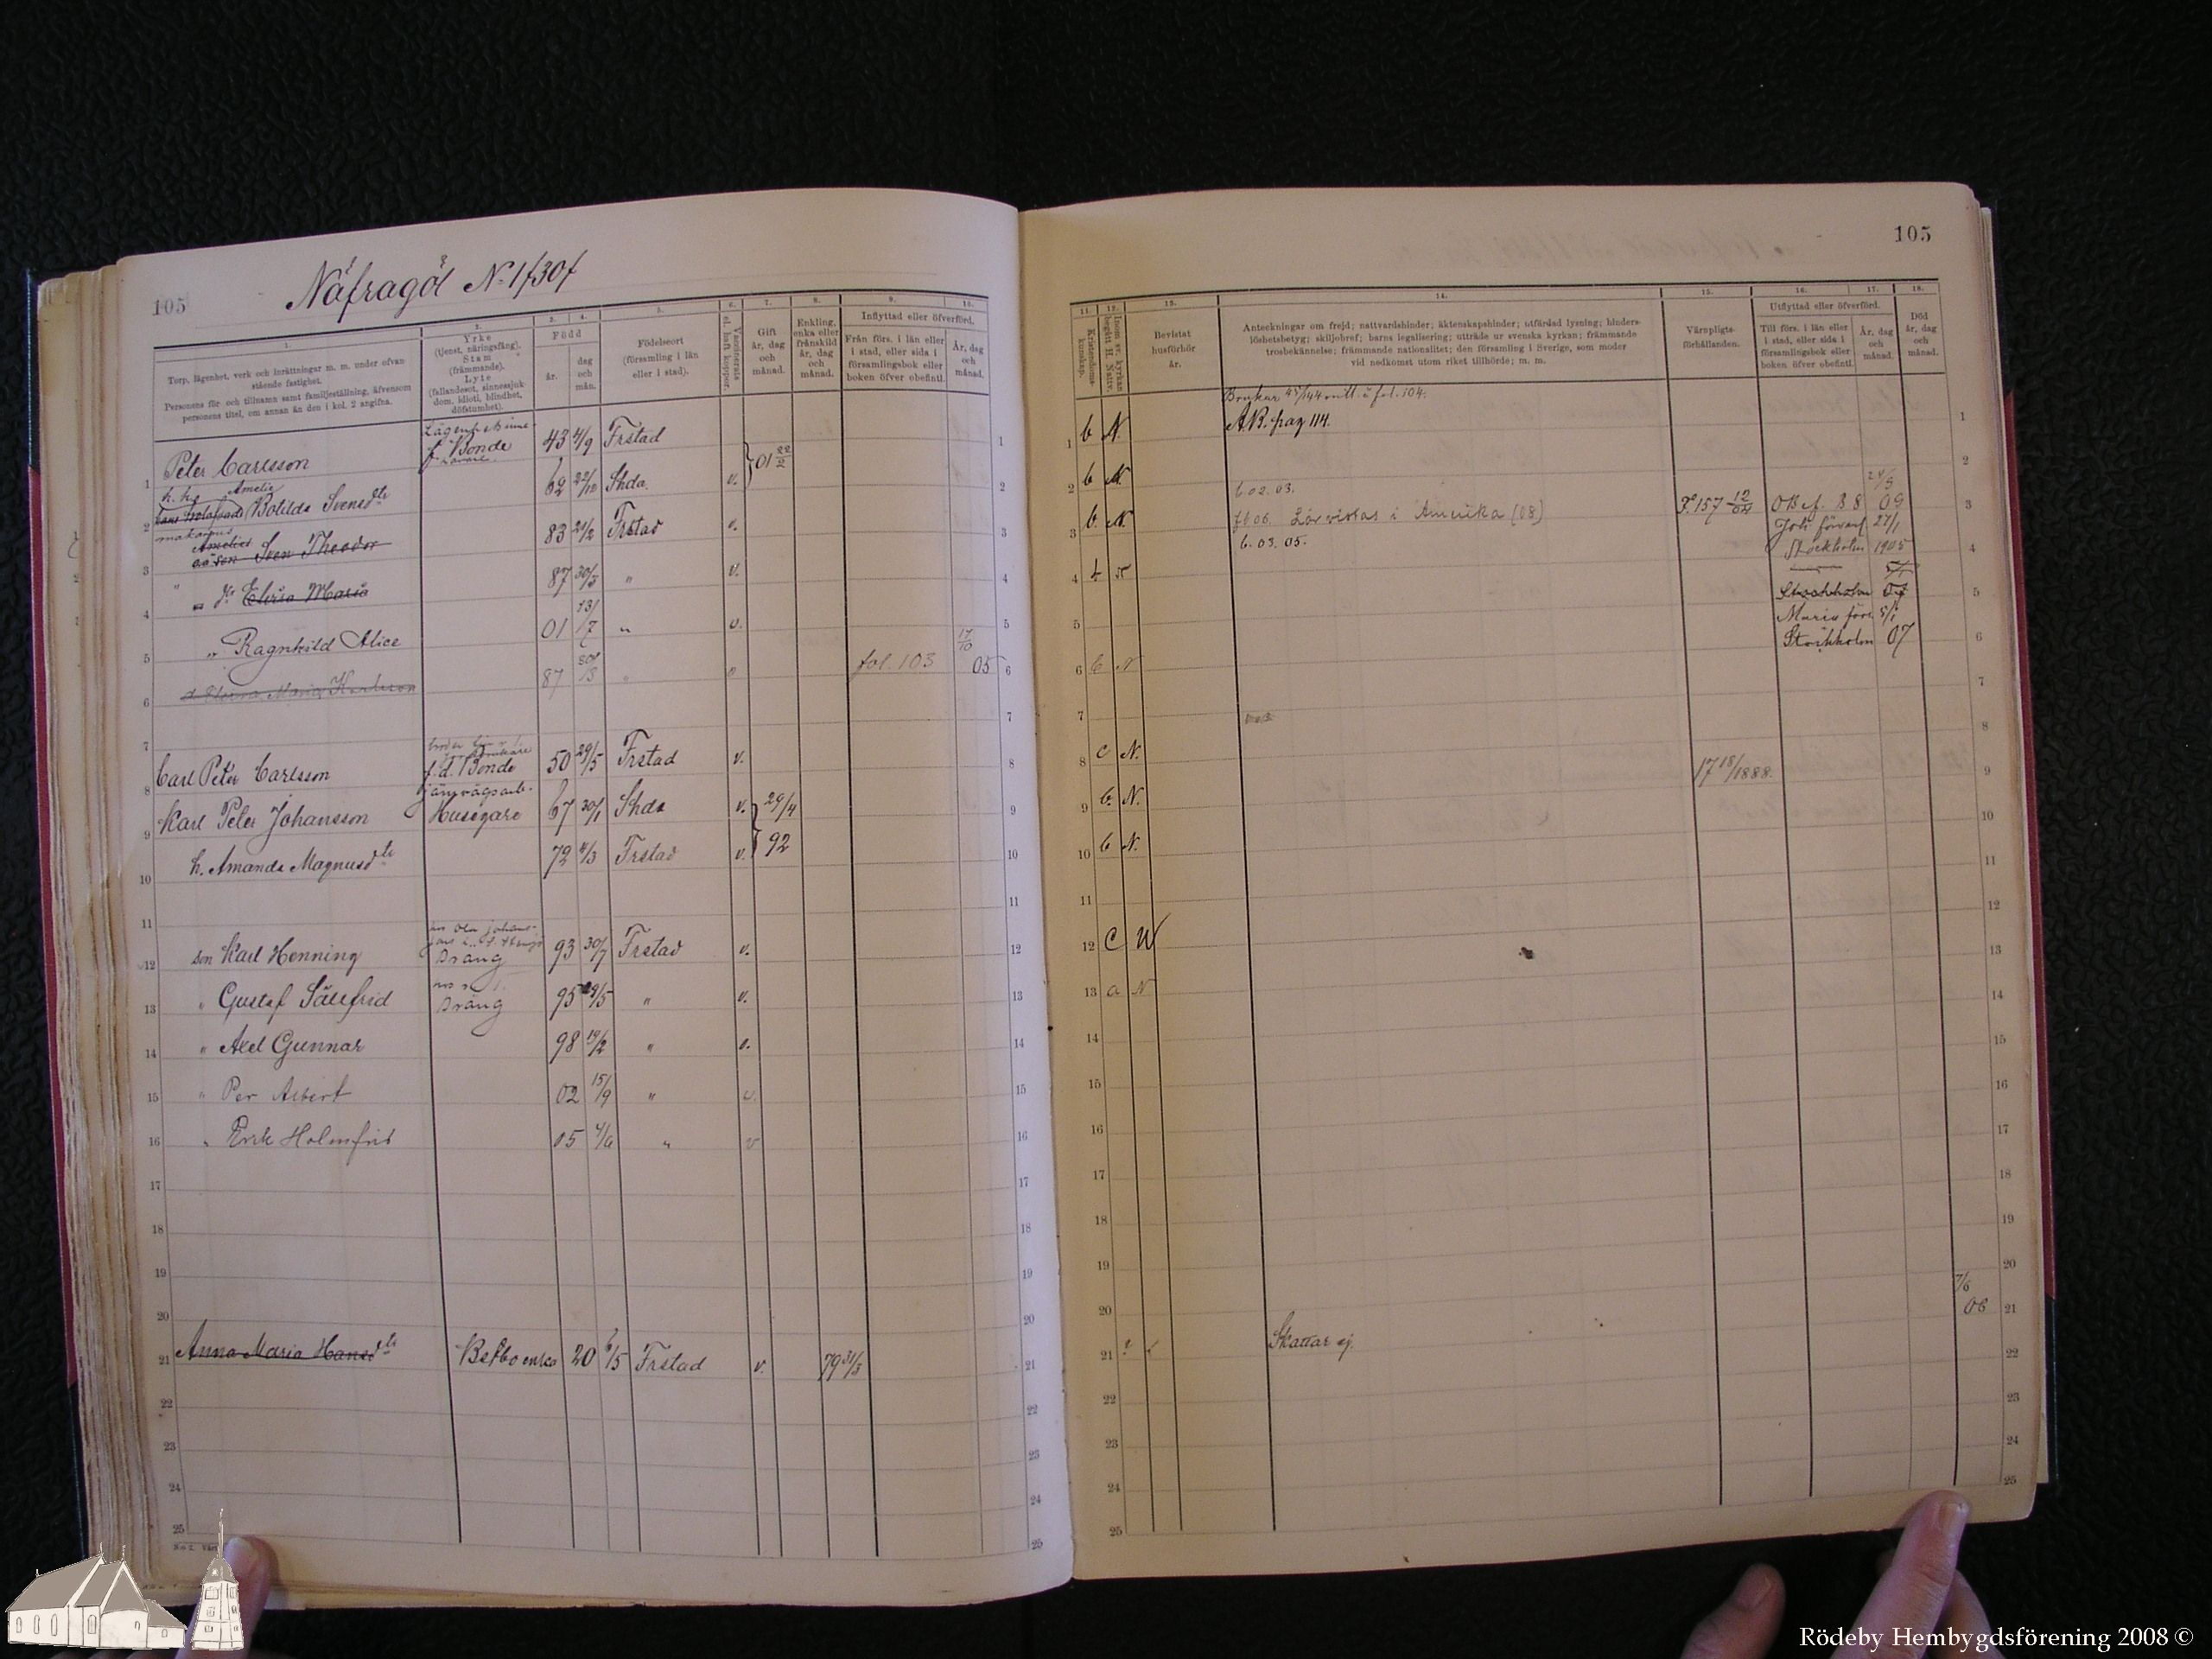 105
Näfragöl N. 1/30f
1.
Torp, lägenhet, verk och inrättningar m. m. under ofvan stående fastighet.
Personens för- och tillnamn samt familjeställning, äfvensom personens titel, om annan än den i kol. 2 angifna.
2.
Yrke
(tjenst, näringsfång).
Stam
(främmande).
Lyte
(fallandesot, sinnessjukdom, idioti, blindhet, döfstumhet).
3. 4.
Född
år.
dag och mån.
5.
Födelseort
(församling i län eller i stad).
6.
Vaccinerats el. haft koppor.
7.
Gift
år, dag och månad.
8.
Enkling, enka eller frånskild år, dag och månad.
9. 10.
Inflyttad eller öfverförd.
Från förs. i län eller i stad, eller sida i församlingsbok eller boken öfver obefintl.
År, dag och månad.
1 Peter Carlsson f. Bonde 43 4/9 Frstad
2 h. h. Amelie Bolilda Svensdtr 62 22/10 Shda. v. 01 22/2
3 son Sven Theodor 83 21/2 Frstad v.
4 " dr Elvira Maria 87 30/3 " v.
5 " Ragnhild Alice 01 13/7 " v.
6 d. Maria Karlsson 87 30/3 " v fol. 103 17/10 05
7
8 Carl Peter Carlsson f.d. Bonde 50 29/5 Frstad v.
järnvägsarb.
9 Karl Peter Johansson Husegare 67 30/1 Shda v. 29/4
10 h. Amanda Magnusdtr 72 4/3 Frstad v. 92
11
12 son Karl Henning Dräng 93 30/7 Frstad v.
13 " Gustaf Sälfrid Dräng 95 29/5 " v.
14 " Axel Gunnar 98 19/2 " v.
15 " Per Albert 02 15/9 " v.
16 " Erik Holmfrid 05 4/6 " v
17
18
19
20
21 Anna Maria Hansdtr 20 6/5 Frstad v. 79 31/3
22
23
24
25
105
11.
Kristendomskunskap.
12.
Inom sv. kyrkan begått H. Nattv.
13.
Bevistat husförhör år.
14.
Anteckningar om frejd; nattvardshinder; äktenskapshinder; utfärdad lysning; hinderslöshetsbetyg; skiljobref; barns legalisering; utträde ur svenska kyrkan; främmande trosbekännelse; främmande nationalitet; den församling i Sverige, som moder vid nedkomst utom riket tillhörde; m. m.
15.
Värnpligtsförhållanden.
16. 17.
Utflyttad eller öfverförd.
Till förs. i län eller i stad, eller sida i församlingsbok eller boken öfver obefintl.
År, dag och månad.
18.
Död
år, dag och månad.
Brukar 45/144 mtl. å fol. 104.
1 b N. A.B. pag 114.
2 b N.
b 02. 03.
3 b. N. fb 06. Lär vistas i Amerika (08) F. 157 12/04 OB ef. 88 24/9 09
b. 03. 05. Joh. förs. 27/1
4 Stockholm 1905
5 Stockholm 07
Maria förs 5/1
6 b N Stockholm 07
7
8 c N.
9 b. N. 17 18/1888.
10 b N.
11
12 C N
13 a N
14
15
16
17
18
19
20 7/6
21 Skattar ej. 06
22
23
24
25
Rödeby Hembygdsförening 2008 ©